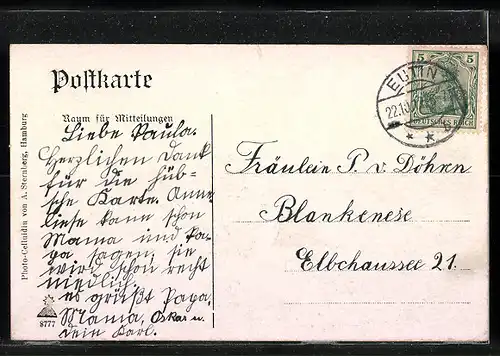 Postkarte
Raum für Mitteilungen
Liebe Paula.
Herzlichen Dank
für die hüb-
sche Karte. Anne
liese kann schon
Mama und Pa-
pa sagen, sie
wird schon recht
niedlich.
es grüßt Papa
Mama, Oskar u.
dein Karl.
Photo-Celluidin von A. Sternberg, Hamburg
8777
5 5
DEUTSCHES REICH
EUTIN
22.10.
Fräulein P. v Döhren
Blankenese
Elbchaussee 21.